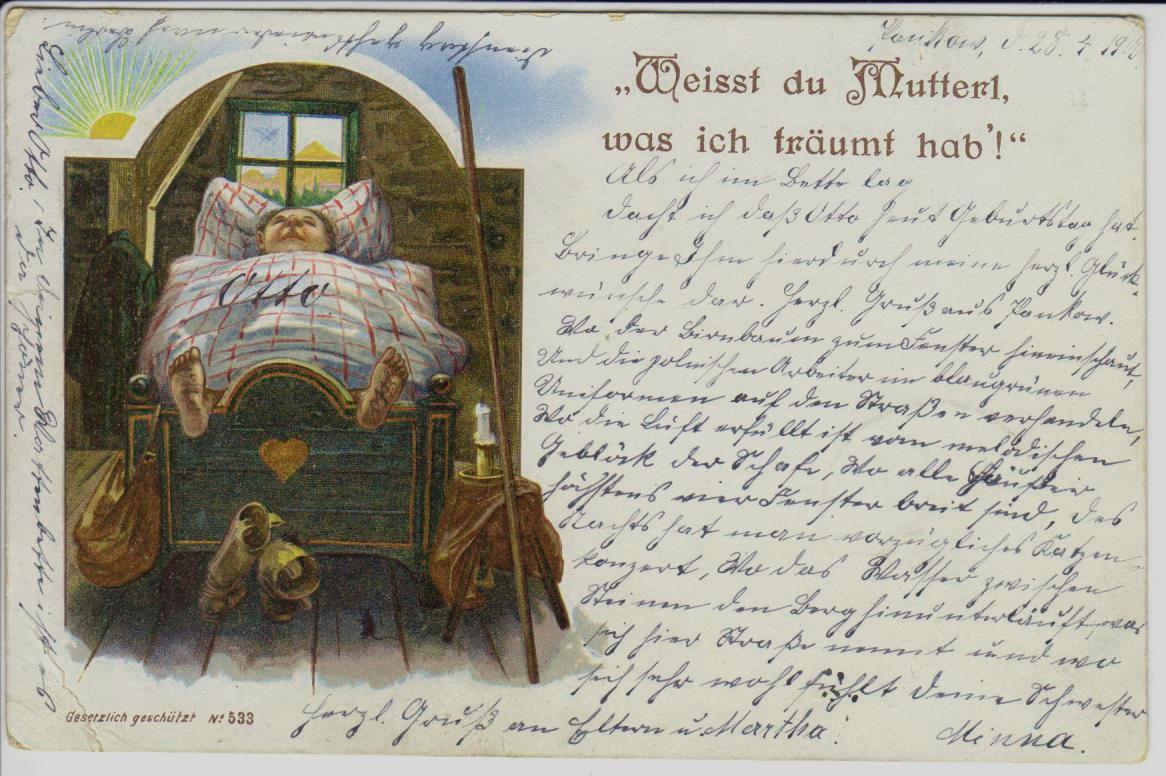 Pankow, d. 28. 4. 190
„Weisst du Mutterl,
was ich träumt hab'!“
Als ich im Bette lag
dacht ich daß Otto heut Geburtstag hat.
Bringe Ihm hierdurch meine herzl. Glück-
wünsche dar. Herzl. Gruß aus Pankow.
Wo der Birnbaum zum Fenster hineinschaut,
Und die polnischen Arbeiter in blaugrünen
Uniformen auf den Straßen verhandeln,
Wo die Luft erfüllt ist vom melodischen
Geblök der Schafe, Wo alle Häuser
höchstens vier Fenster breit sind, Des
Nachts hat man vorzügliches Katzen-
konzert, Wo das Wasser zwischen
Steinen den Berg hinunterläuft, was
sich hier Straße nennt und wo
sich sehr wohl fühlt deine Schwester
Minna.
Herzl. Gruß an Eltern u Martha!
Otto
Lieber Otto! In deinem Bette ist es
Dienstag geht wieder nach Berlin
Gesetzlich geschützt No 533